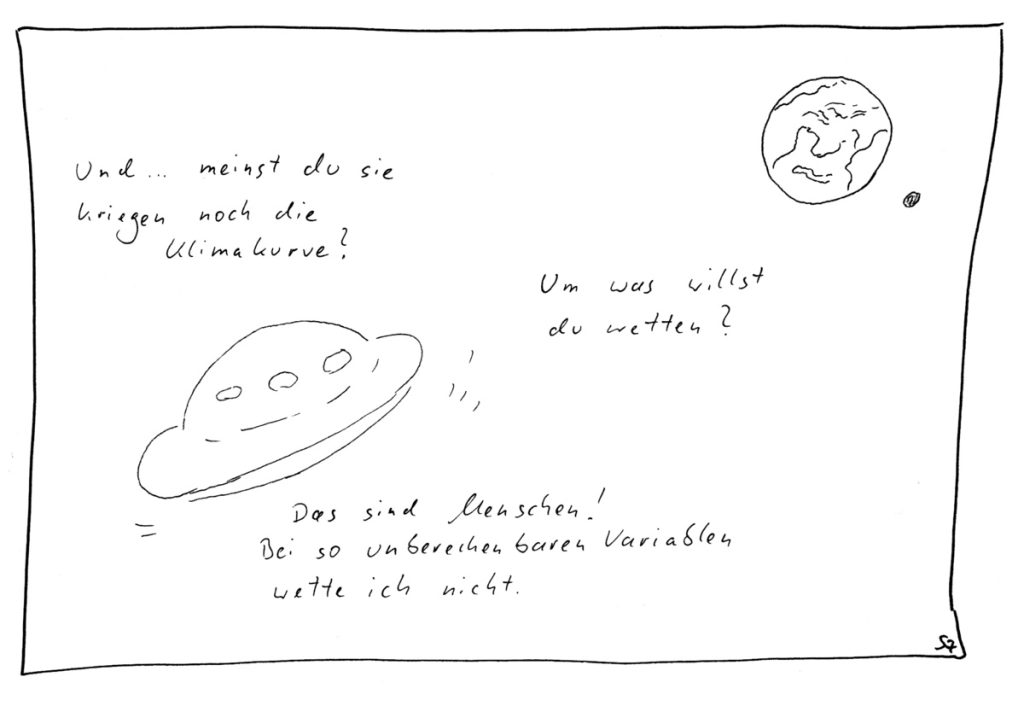 Und... meinst du sie
kriegen noch die
Klimakurve?
Um was willst
du wetten?
Das sind Menschen!
Bei so unberechenbaren Variablen
wette ich nicht.